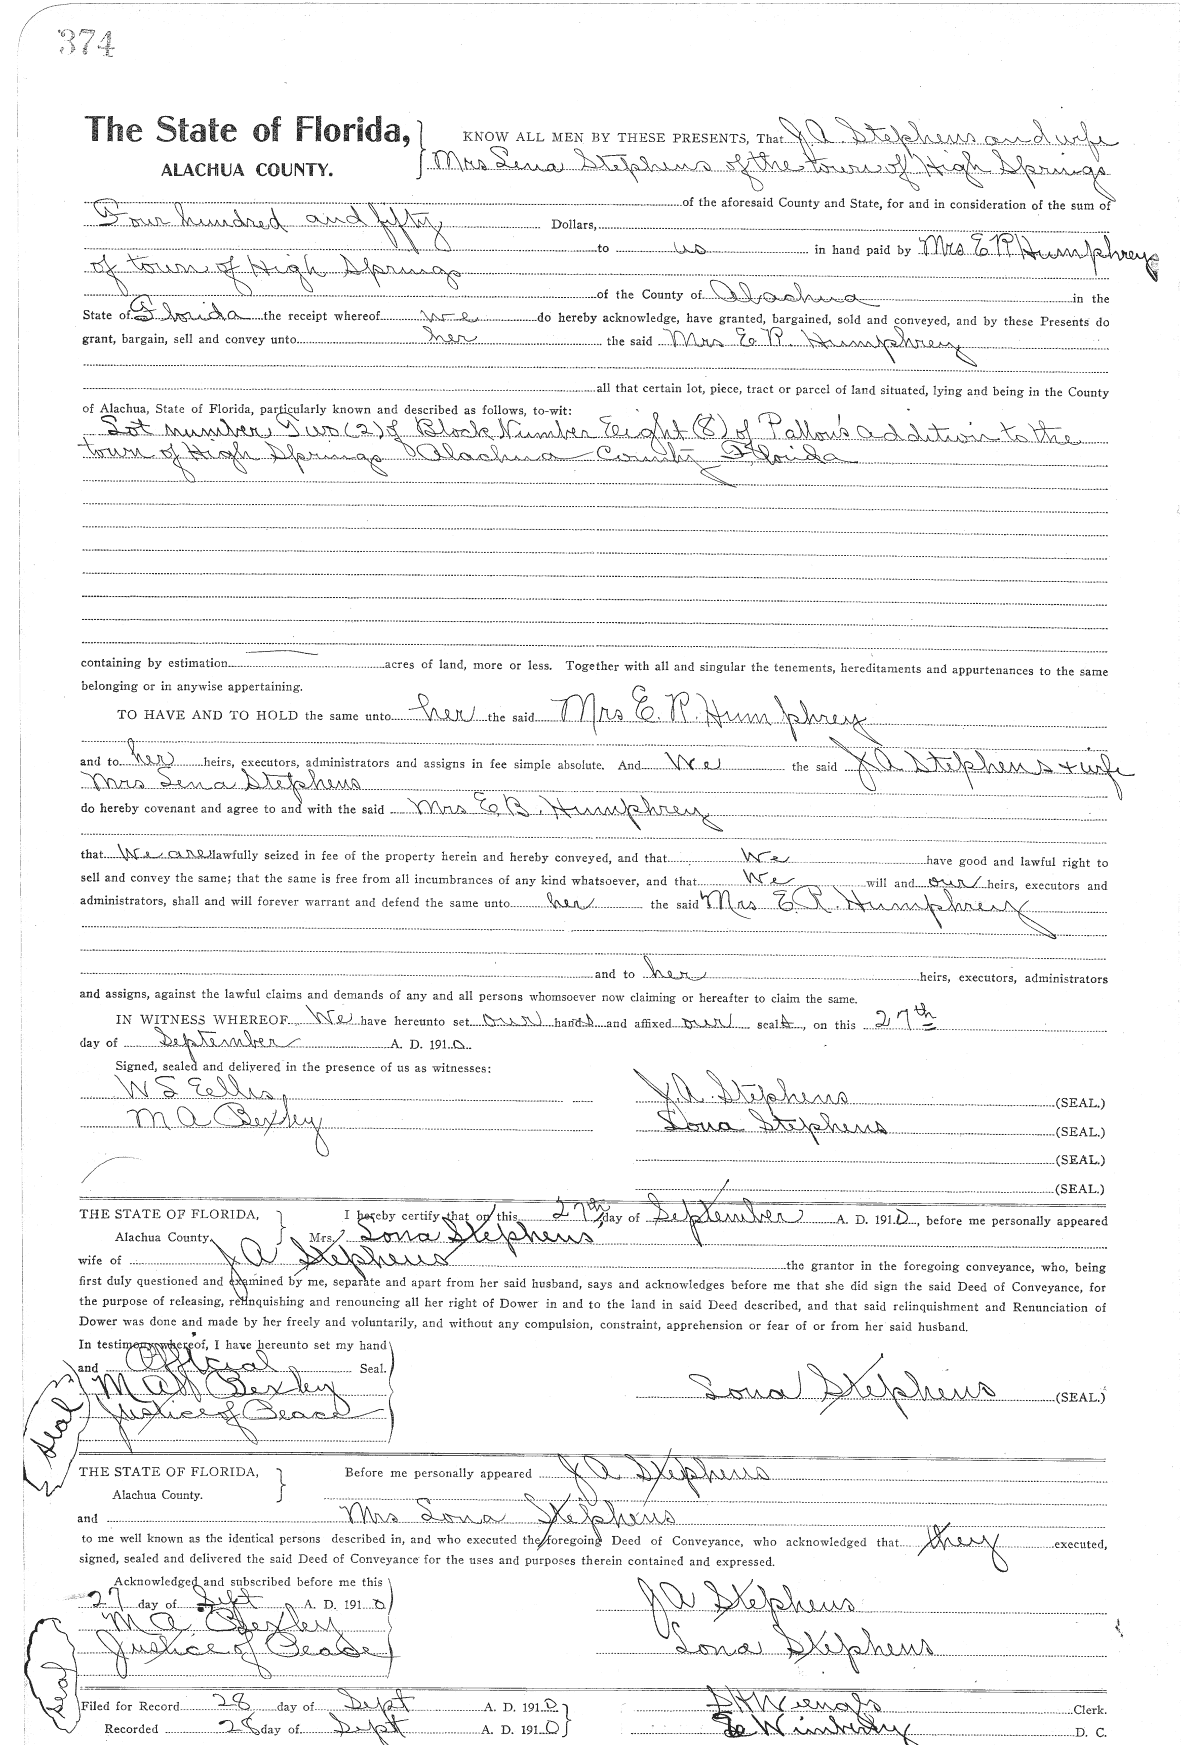 374
The State of Florida, KNOW ALL MEN BY THESE PRESENTS, That J. A. Stephens and wife
ALACHUA COUNTY. Mrs Lena Stephens of the town of High Springs
of the aforesaid County and State, for and in consideration of the sum of
Four hundred and fifty Dollars,
to us in hand paid by Mrs E R Humphrey
of town of High Springs
of the County of Alachua in the
State of Florida the receipt whereof we do hereby acknowledge, have granted, bargained, sold and conveyed, and by these Presents do
grant, bargain, sell and convey unto her the said Mrs E R. Humphrey
all that certain lot, piece, tract or parcel of land situated, lying and being in the County
of Alachua, State of Florida, particularly known and described as follows, to-wit:
Lot number Two (2) of Block Number Eight (8) of addition to the
town of High Springs Alachua County Florida
containing by estimation acres of land, more or less. Together with all and singular the tenements, hereditaments and appurtenances to the same
belonging or in anywise appertaining.
TO HAVE AND TO HOLD the same unto her the said Mrs E. R. Humphrey
and to her heirs, executors, administrators and assigns in fee simple absolute. And We the said J A Stephens & wife
Mrs Lena Stephens
do hereby covenant and agree to and with the said Mrs E. B. Humphrey
that We are lawfully seized in fee of the property herein and hereby conveyed, and that We have good and lawful right to
sell and convey the same; that the same is free from all incumbrances of any kind whatsoever, and that We will and our heirs, executors and
administrators, shall and will forever warrant and defend the same unto her the said Mrs E. R. Humphrey
and to her heirs, executors, administrators
and assigns, against the lawful claims and demands of any and all persons whomsoever now claiming or hereafter to claim the same.
IN WITNESS WHEREOF We have hereunto set our hands and affixed our seals, on this 27th
day of September A. D. 1910.
Signed, sealed and delivered in the presence of us as witnesses:
W S Ellis J. A. Stephens (SEAL.)
M A Bexley Lona Stephens (SEAL.)
(SEAL.)
(SEAL.)
THE STATE OF FLORIDA, I hereby certify that on this 27th day of September A. D. 1910, before me personally appeared
Alachua County Mrs. Lona Stephens
wife of J A Stephens the grantor in the foregoing conveyance, who, being
first duly questioned and examined by me, separate and apart from her said husband, says and acknowledges before me that she did sign the said Deed of Conveyance, for
the purpose of releasing, relinquishing and renouncing all her right of Dower in and to the land in said Deed described, and that said relinquishment and Renunciation of
Dower was done and made by her freely and voluntarily, and without any compulsion, constraint, apprehension or fear of or from her said husband.
In testimony whereof, I have hereunto set my hand
and Official Seal.
M A Bexley Lona Stephens (SEAL.)
Justice of Peace
Seal
THE STATE OF FLORIDA, Before me personally appeared J A Stephens
Alachua County.
and Mrs Lona Stephens
to me well known as the identical persons described in, and who executed the foregoing Deed of Conveyance, who acknowledged that they executed,
signed, sealed and delivered the said Deed of Conveyance for the uses and purposes therein contained and expressed.
Acknowledged and subscribed before me this
27 day of Sept A. D. 1910 J A Stephens
M A. Bexley
Justice of Peace Lona Stephens
Seal
Filed for Record 28 day of Sept A. D. 1910 Clerk.
Recorded 28 day of Sept A. D. 1910 Wimberly D. C.